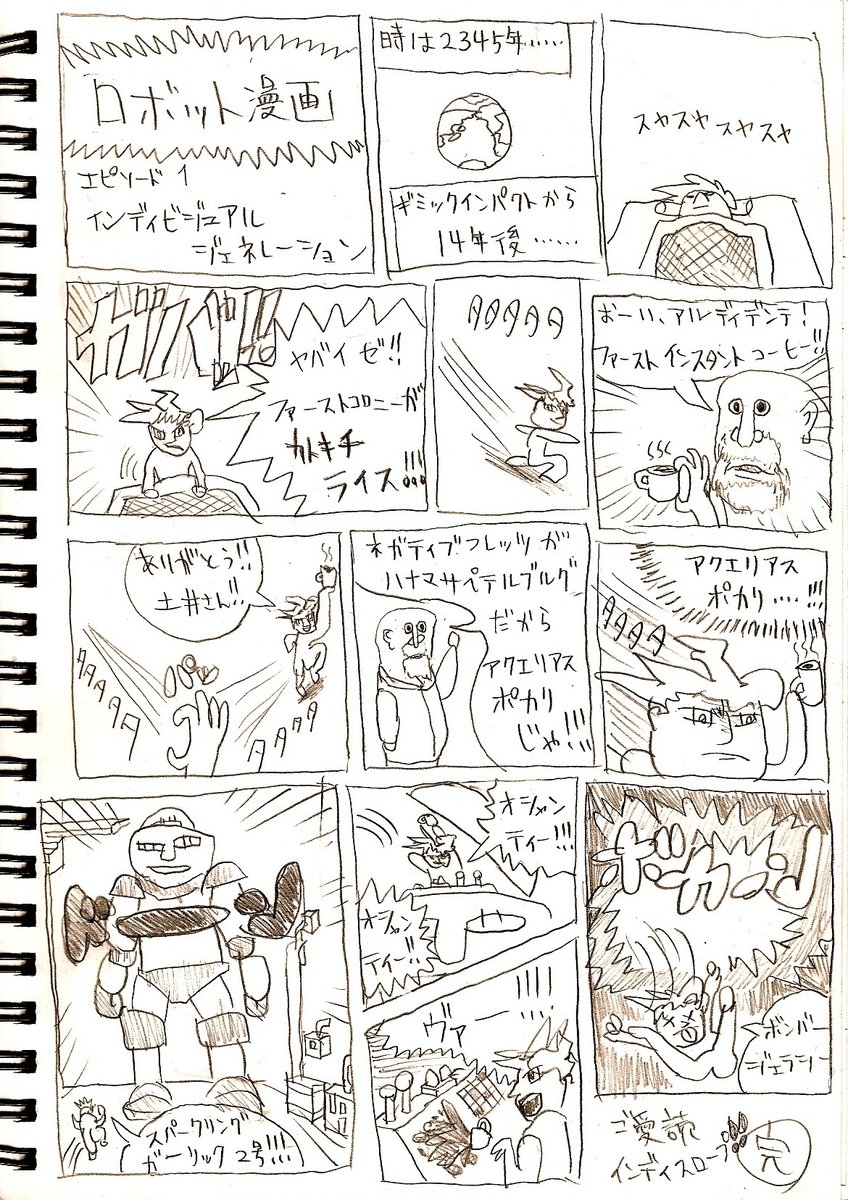 ロボット漫画
エピソード 1
インディビジュアル
ジェネレーション
時は2345年……
ギミックインパクトから
14年後……
スヤスヤ スヤスヤ
ガバッ!!
ヤバイゼ!!
ファーストコロニーが
カトキチ
ライス!!!
タタタタタ
おーい、アルディデンテ!
ファースト インスタント コーヒー!!
ありがとう!!
土井さん!!
タタタタタ
タタタタ
ネガティブフレッツが
ハナマサペテルブルグ
だから
アクエリアス
ポカリ
じゃ!!!
アクエリアス
ポカリ……!!!
タタタタ
スパークリング
ガーリック2号!!!
オシャン
ティー!!!
オシャン
ティー!!
ヴァー!!!!
ボカーン
ボンバー
ジェラシー
ご愛読
インディスロープ!!!
完